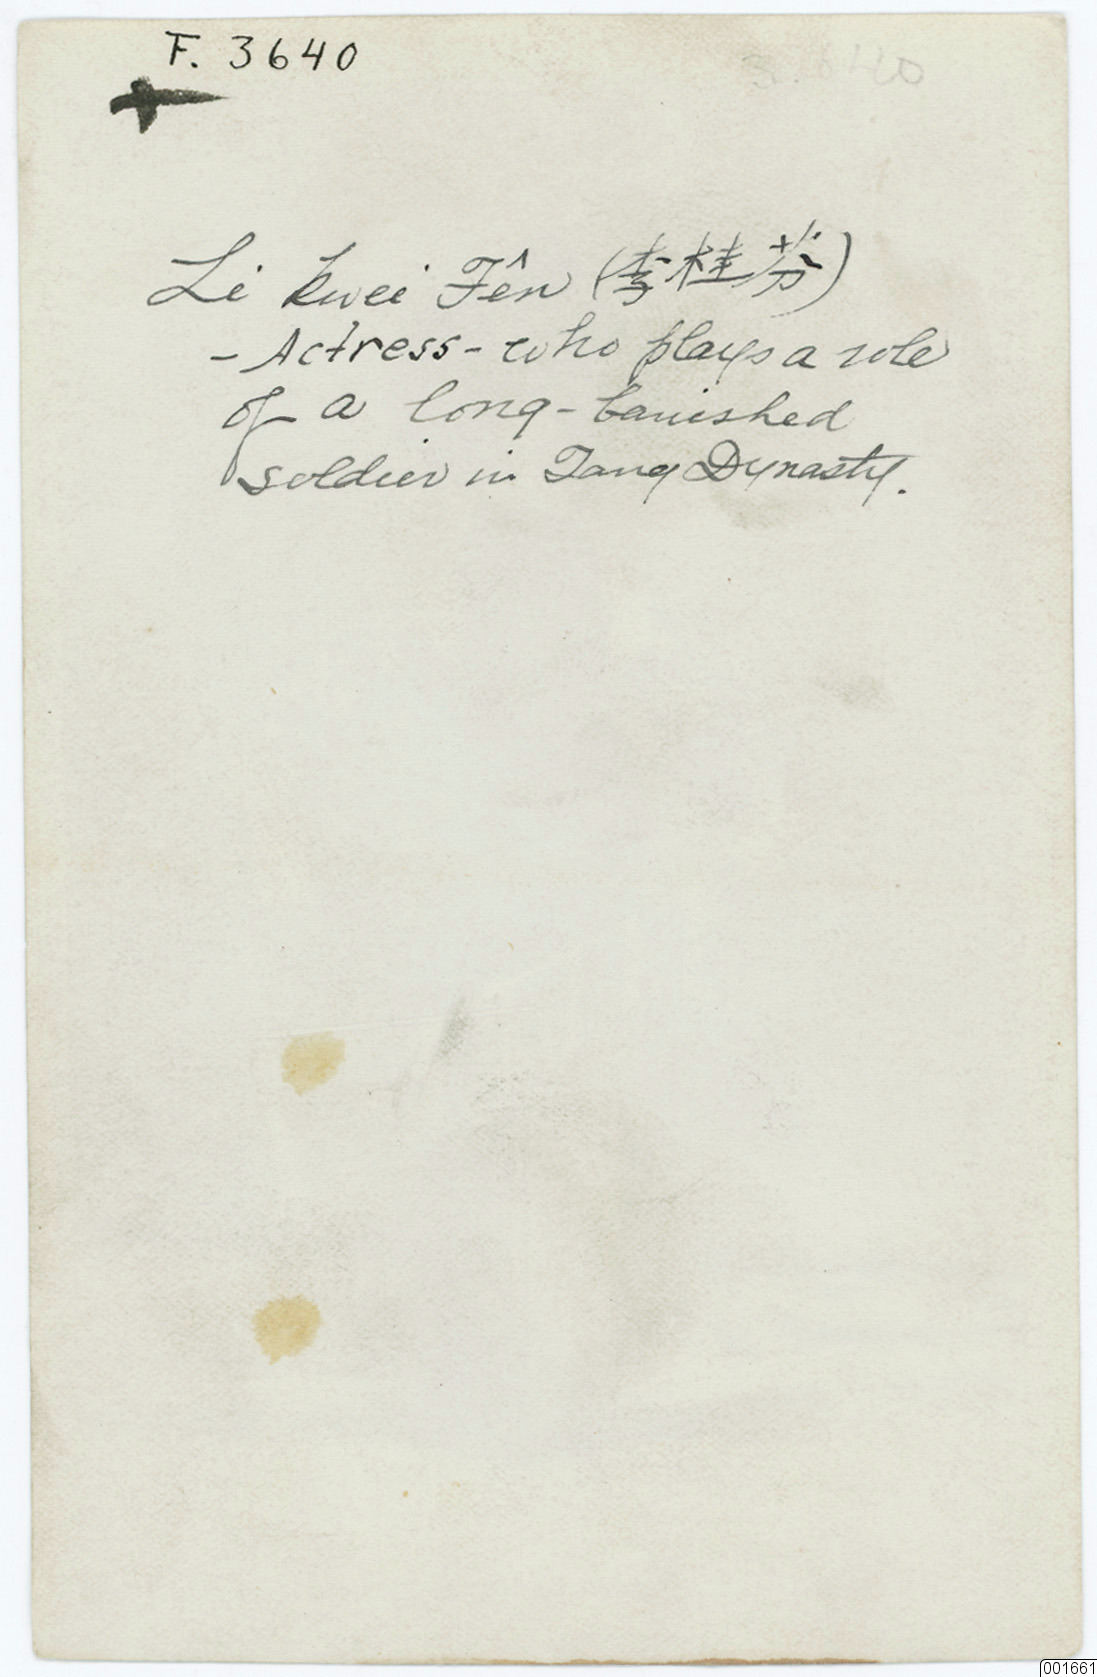 F. 3640
Li Kwei Fên (李桂芬)
- Actress - who plays a role
of a long-banished
soldier in Tang Dynasty.
001661